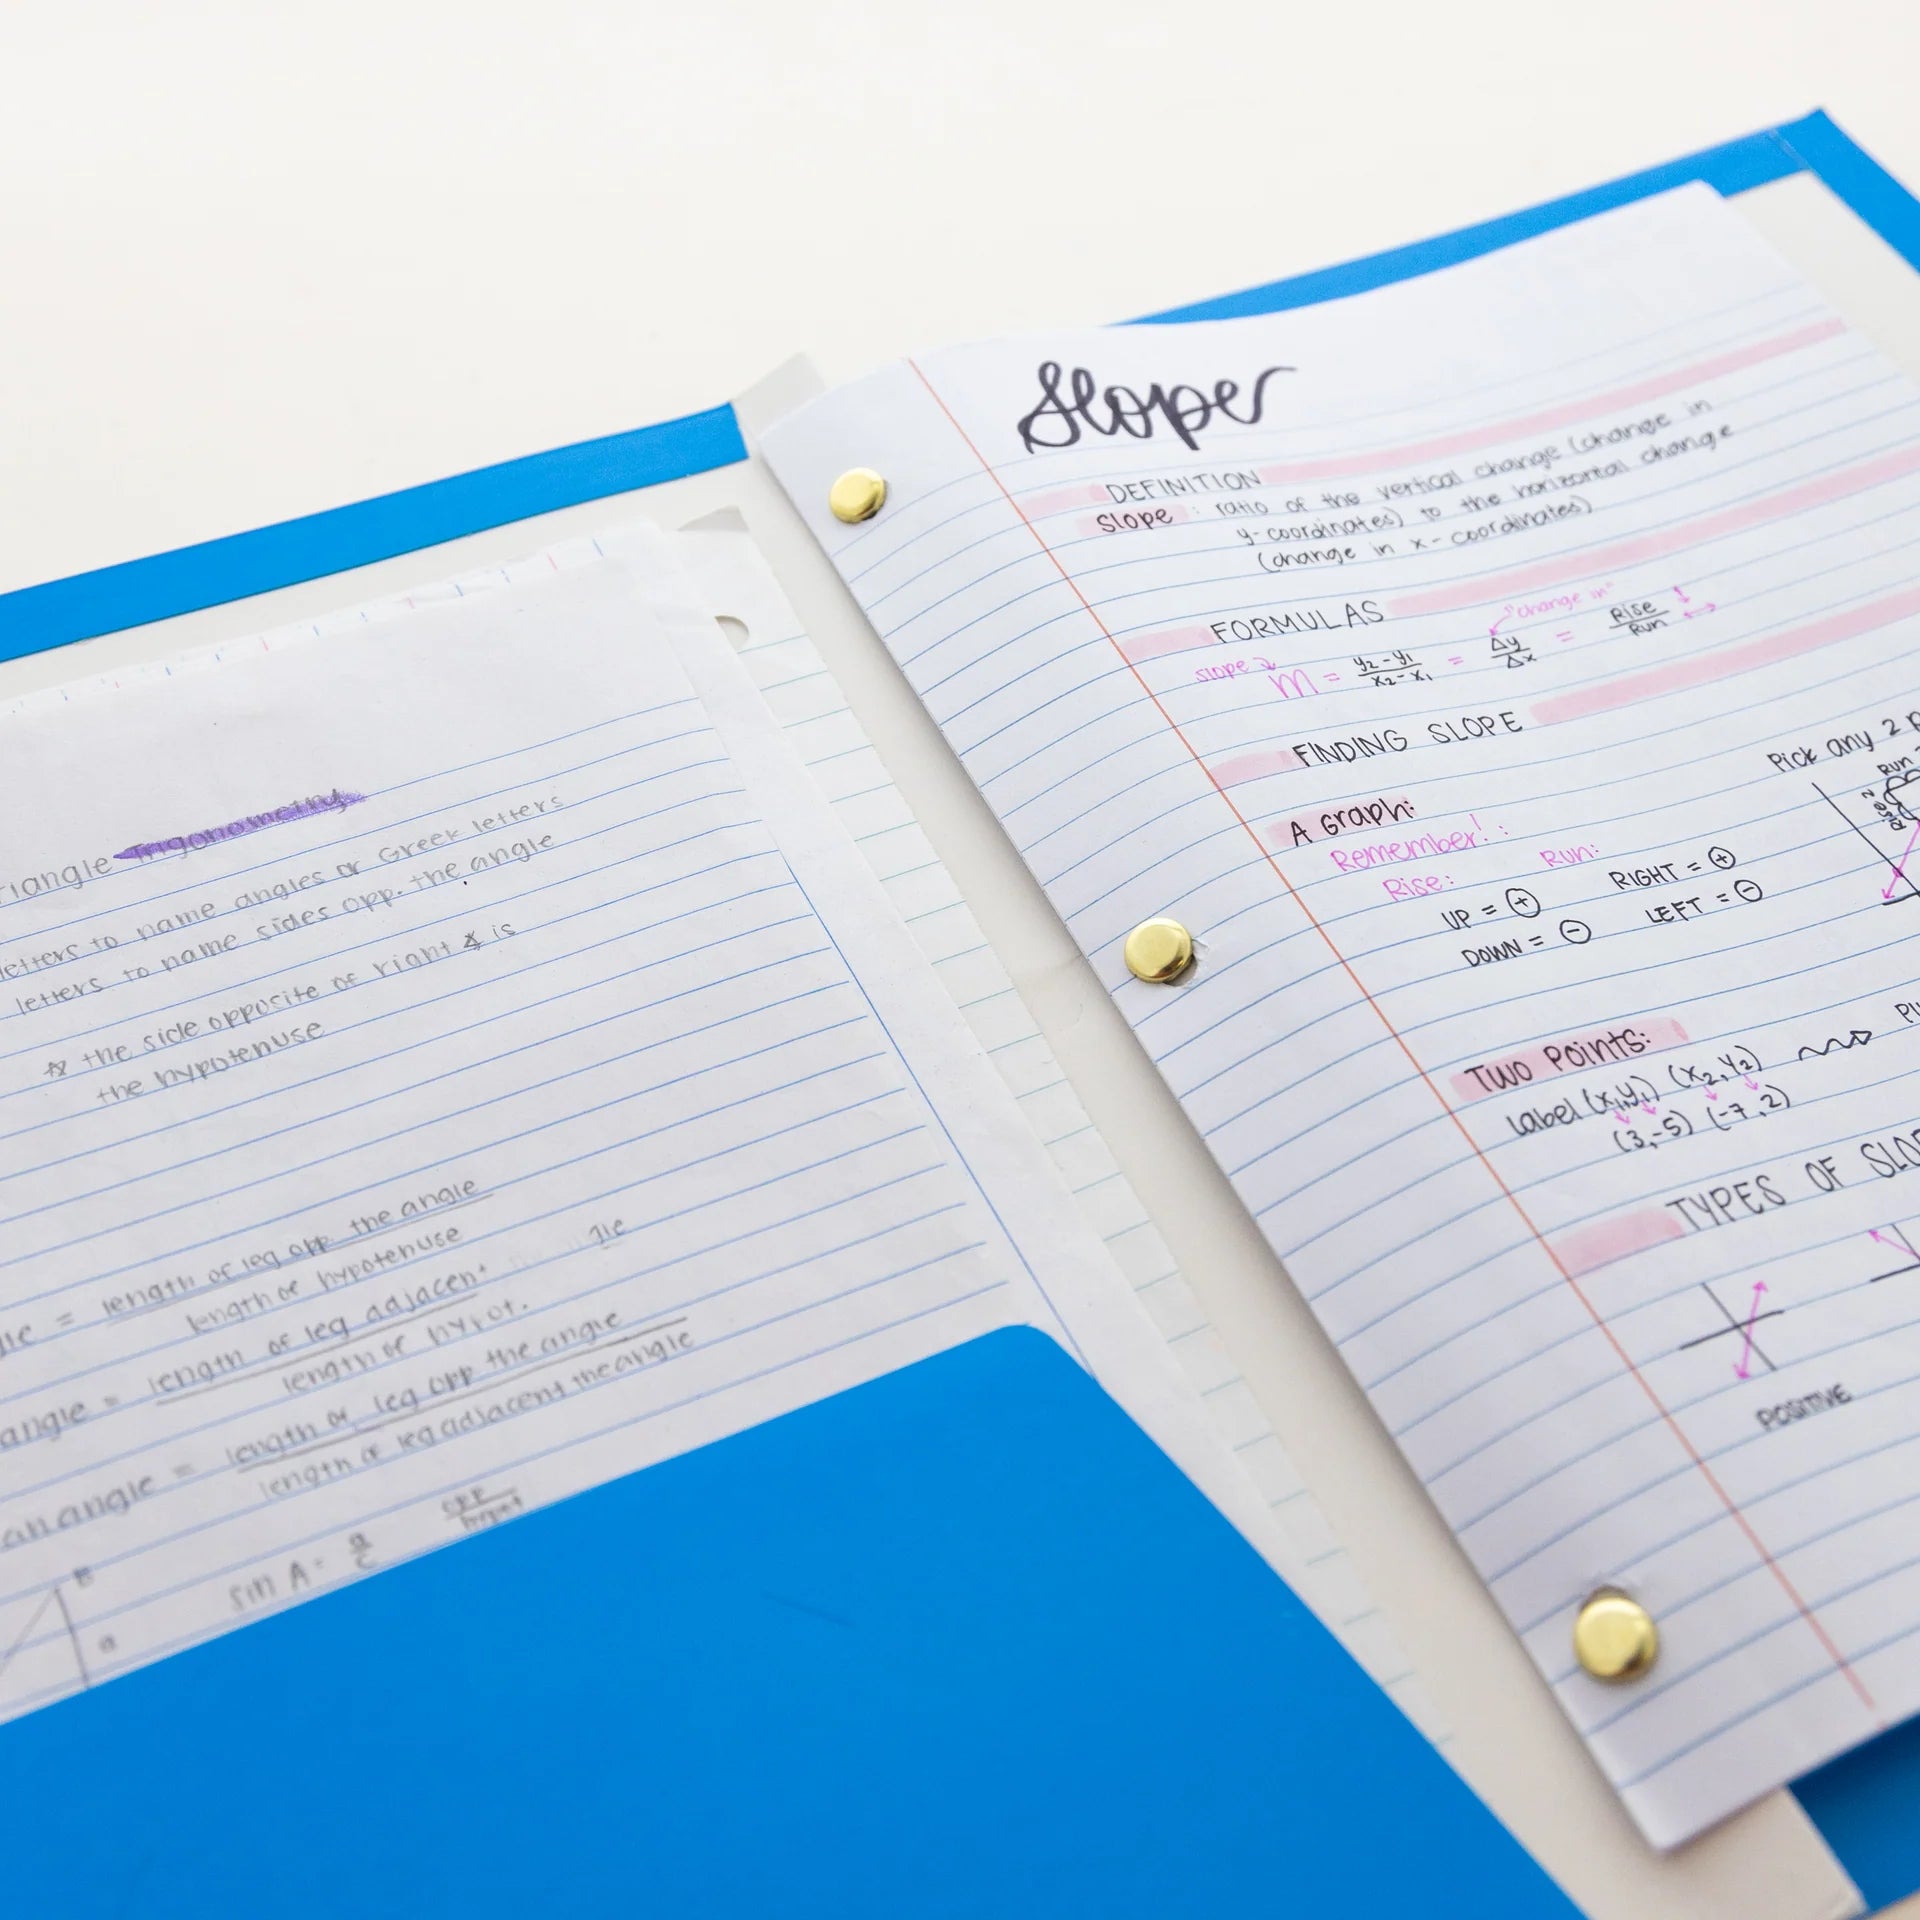 riangle Trigonometry
letters to name angles or Greek letters
letters to name sides opp. the angle
☆ the side opposite of right ∡ is
the hypotenuse
= length of leg opp the angle
length of hypotenuse
angle = length of leg adjacent
length of hypot.
an angle = length of leg opp the angle
length of leg adjacent the angle
sin A = a/c opp/hypot
B
a
Slope
DEFINITION
Slope : ratio of the vertical change (change in
y-coordinates) to the horizontal change
(change in x-coordinates)
FORMULAS
"change in"
slope m = y₂-y₁/x₂-x₁ = Δy/Δx = Rise/Run ↕ ↔
FINDING SLOPE
A Graph: Pick any 2 p
Remember! :
Rise: Run:
UP = ⊕ RIGHT = ⊕
DOWN = ⊖ LEFT = ⊖
Rise 2
Run
TWO POINTS:
Label (x₁,y₁) (x₂,y₂)
(3,-5) (-7,2)
TYPES OF SLOP
POSITIVE